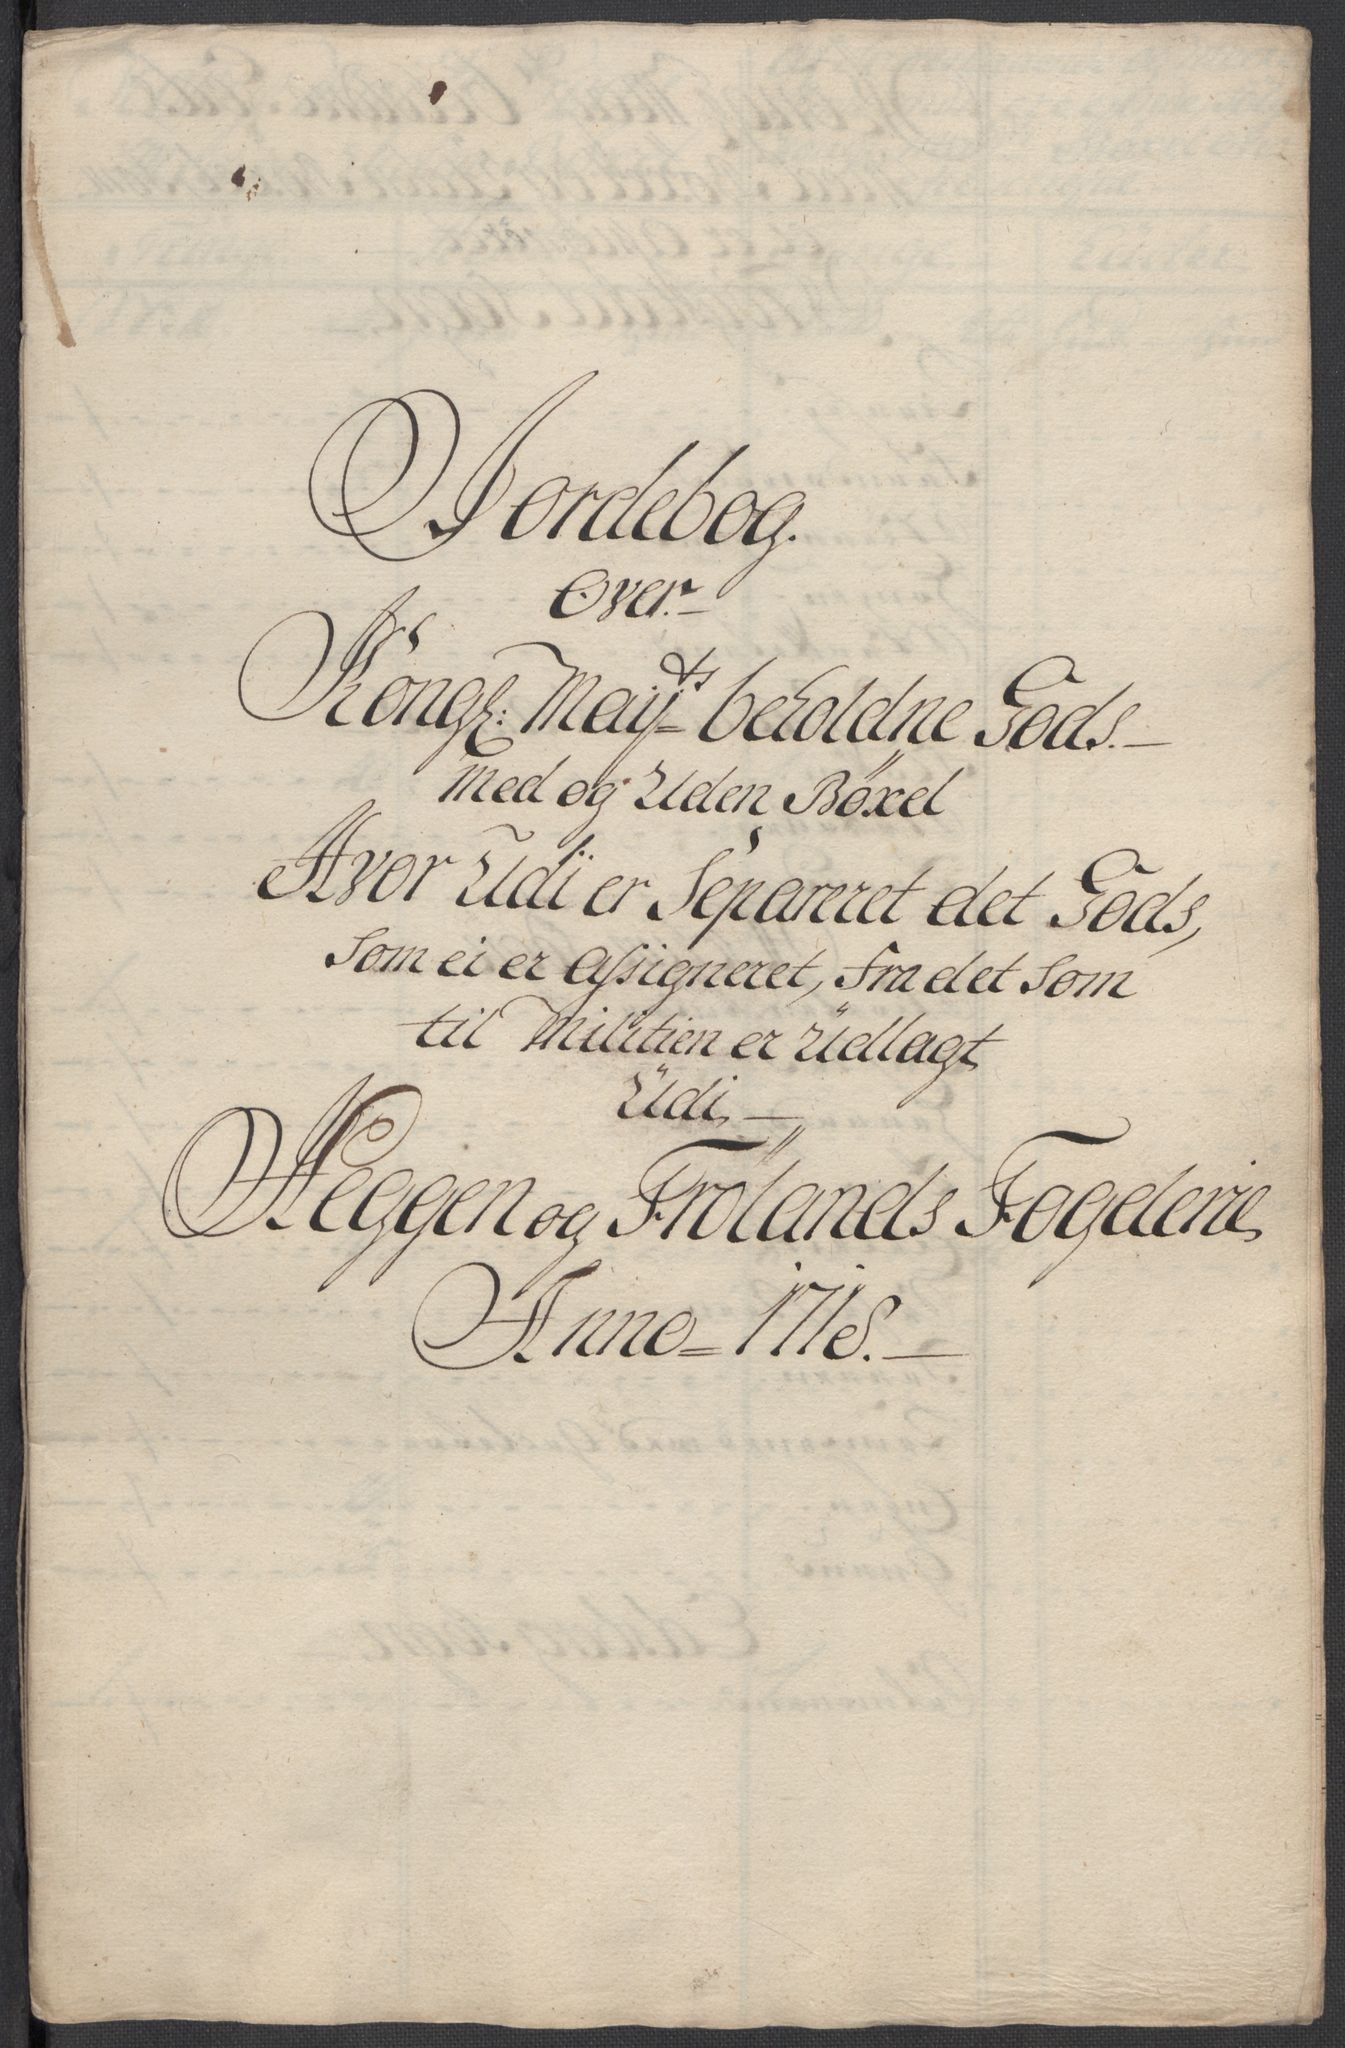 Jordebog.
Over.
Kongl: Mayts beholdne Gods.
Med og Uden Böxel
Hvor Udi er Separeret det Gods,
Som ei er Assigneret, fra det Som
til Militien er Udlagt
Udi
Heggen og Frölands Fogderie
Anno = 1718.